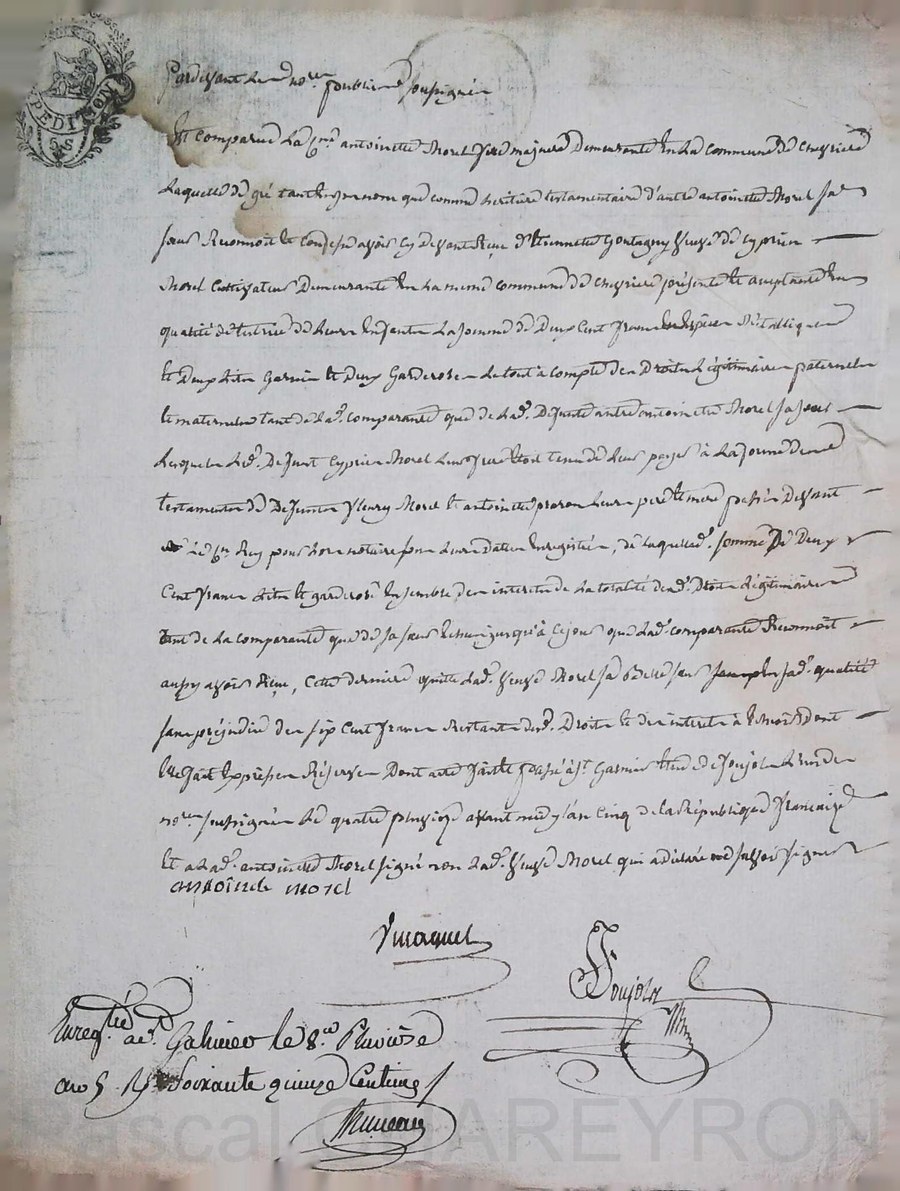 PÉDITION
5 S
Pardevant les no.res publics soussignés
Est comparue La C.ne antoinette Morel fille majeure demeurante En La commune de
Laquelle de gré tant En son nom que comme héritière testamentaire d'autre antoinette Morel sa
sœur Reconnoit Et Confesse avoir cy devant Reçu d'Etiennette Gontagny Veuve de Cyprien
Morel Cultivateur Demeurante En La meme commune de présente Et acceptante En
qualité de tutrice de Leurs Enfants La somme de Deux Cent Francs En Espèces Métalliques
Et Deux Lits Garnis Et Deux Garderobes Le tout à compte des Droits Légitimaires paternels
Et maternels tant de La d. comparante que de La d. Defunte autre antoinette Morel sa sœur
Lesquels Led. Defunt Cyprien Morel Leur frere Etoit tenu de Leur payer à La forme des
testaments de Defunts Fleury Morel Et antoinette Leurs pere Et mere passés Devant
Le C.en Rey pour Lors notaire sous Leurs Dates Enregistrés, de Laquelle d. somme De Deux
Cent Francs Lits Et garderobes Ensemble des interets de La totalité desd. Droits Légitimaires
tant de La comparante que de sa sœur jusqu'à Ce jour que Lad. comparante Reconnoit
aussy avoir Reçu, Cette derniere quitte Lad. Veuve Morel sa Belle sœur sad. qualité
sans préjudice des six Cent Francs Restants desd. Droits Et des interets à Echoir dont
Elle fait Expresses Réserves Dont acte fait Et passé à S.t Garmier Etude de Joujols L'un des
no.res soussignés Le quatre pluviose avant midy L'an Cinq de La République Française
Et a Lad. antoinette Morel signé non Lad. Veuve Morel qui a déclaré ne savoir signer
antoinete morel
Joujols
Enreg.tré a Galmier le 8. Pluviose
an 5. Soixante quinze Centimes
Pascal CHAREYRON